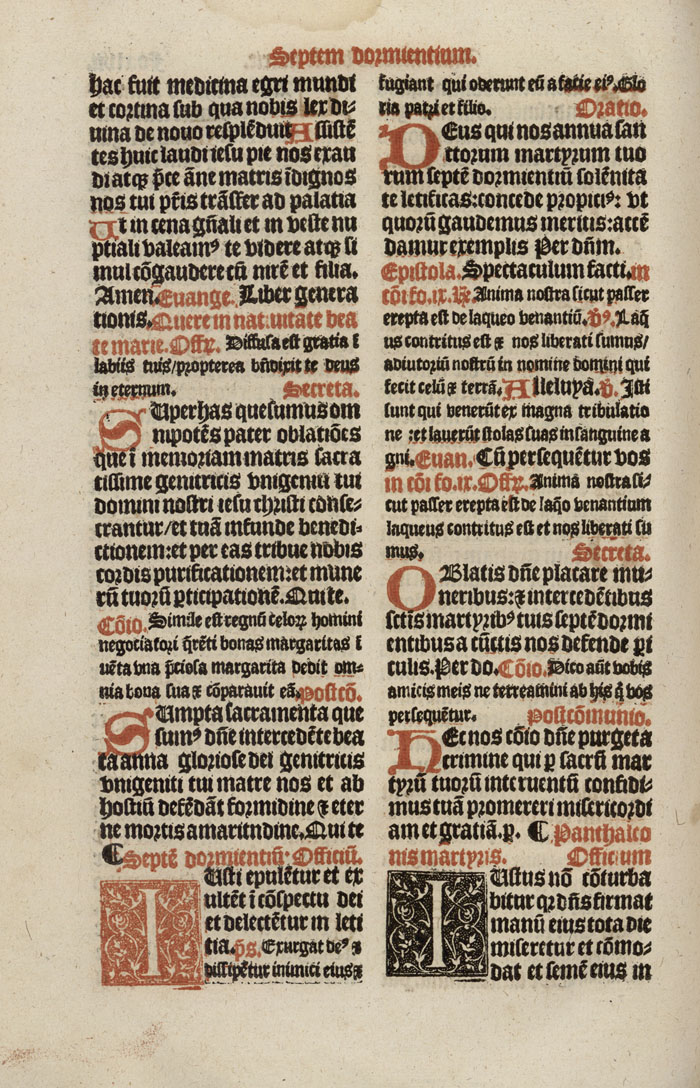 Septem dormientium.
hac fuit medicina egri mundi
et cortina sub qua nobis lex di⸗
uina de nouo resplēduit Assistē
tes huic laudi iesu pie nos exau
di atqꝫ p̄ce āne matris īdignos
nos tui pr̄is trāsfer ad palatia
Ut in cena gn̄ali et in veste nu
ptiali valeamꝰ te videre atqꝫ si
mul cōgaudere cū mr̄e et filia.
Amen. Euange. Liber genera
tionis. Quere in natiuitate bea
te marie. Offꝝ. Diffusa est gratia ī
labiis tuis/propterea bn̄dixit te deus
in eternum. Secreta.
SUper has quesumus om
nipotēs pater oblatiōes
que ī memoriam matris sacra
tissime genitricis vnigeniti tui
domini nostri iesu christi conse⸗
crantur/et tuā infunde benedi⸗
ctionem:et per eas tribue nobis
cordis purificationem:et mune
rū tuorū ꝑticipationē. Qui te.
Cōio. Simile est regnū celoꝝ homini
negociatori q̄rēti bonas margaritas ī
uēta vna p̄ciosa margarita dedit om⸗
nia bona sua ⁊ cōparauit eā. postcō.
SUmpta sacramenta que
sumꝰ dn̄e intercedēte bea
ta anna gloriose dei genitricis
vnigeniti tui matre nos et ab
hostiū defēdāt formidine ⁊ eter
ne mortis amaritndine. Qui te
¶ Septē dormientiū. Officiū.
IUsti epulētur et ex
ultēt ī cōspectu dei
et delectētur in leti
tia. p̄s. Exurgat deꝰ ⁊
dissipētur inimici eius ⁊
fugiant qui oderunt eū a facie eiꝰ. Glo
ria patri et filio. Oratio.
DEus qui nos annua san
ctorum martyrum tuo
rum septē dormientiū solēnita
te letificas:concede propiciꝰ: vt
quorū gaudemus meritis:accē
damur exemplis Per dn̄m.
Epistola. Spectaculum facti. in
cōi fo.ix. Anima nostra sicut passer
erepta est de laqueo venantiū. Laq̄
us contritus est ⁊ nos liberati sumus/
adiutoriū nostrū in nomine domini qui
fecit celū ⁊ terrā. Alleluya. Isti
sunt qui venerūt ex magna tribulatio
ne :et lauerūt stolas suas in sanguine a
gni. Euan. Cū persequētur vos
in cōi fo.ix. Offꝝ. Anima nostra si⸗
cut passer erepta est de laq̄o venantium
laqueus contritus est et nos liberati su
mus. Secreta.
OBlatis dn̄e placare mu⸗
neribus:⁊ intercedētibus
sctis martyribꝰ tuis septē dormi
entibus a cūctis nos defende ꝑi
culis. Per do. Cōio. Dico aūt vobis
amicis meis ne terreamini ab his q̄ vos
persequētur. postcōmunio.
HEc nos cōio dn̄e purget a
crimine qui ꝑ sacrū mar
tyrū tuorū interuentū confidi⸗
mus tuā promereri misericordi
am et gratiā. p. ¶ Panthaleo
nis martyris. Officium
IUstus nō cōturba
bitur qꝛ dn̄s firmat
manū eius tota die
miseretur et cōmo⸗
dat et semē eius in